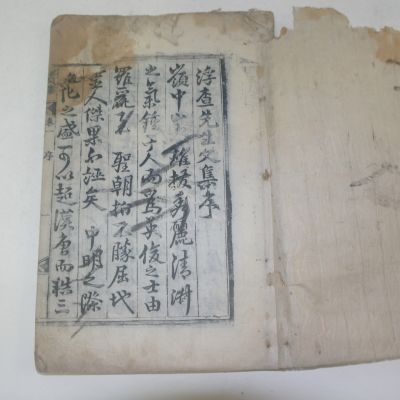 浮查先生文集序
嶺中山雄拔秀麗清淑
之氣鍾于人而爲英俊之士由
羅麗至 聖朝指不勝屈地
靈人傑果不誣矣 中明之際
化之盛可以超漢唐而耦三
序